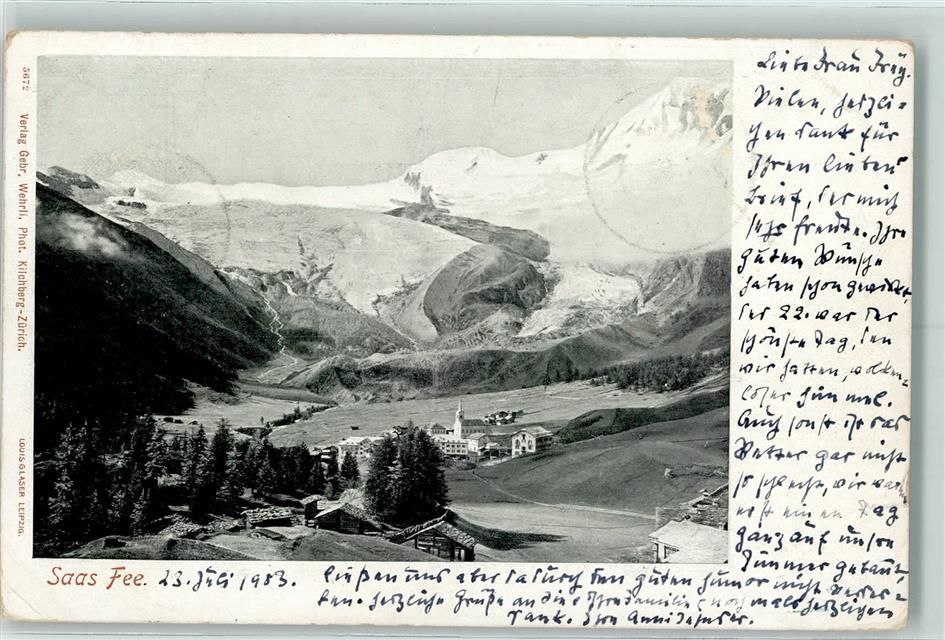 Liebe Frau Frey.
Vielen, herzli-
chen Dank für
Ihren lieben
Brief, der mich
sehr freute. Ihre
guten Wünsche
haben schon gewirkt,
der 22. war der
schönste Tag, den
wir hatten, wolken-
loser Himmel.
Auch sonst ist das
Wetter gar nicht
so schlecht, wir waren
erst einen Tag
ganz auf unsre
Zimmer gebannt,
ließen uns aber dadurch den guten Humor nicht verder-
ben. Herzliche Grüße an die Ihre Familie noch mals herzlichen
Dank. Ihre
Saas Fee. 23. Juli 1903.
5672 Verlag Gebr. Wehrli, Phot. Kilchberg-Zürich.
LOUIS GLASER LEIPZIG.